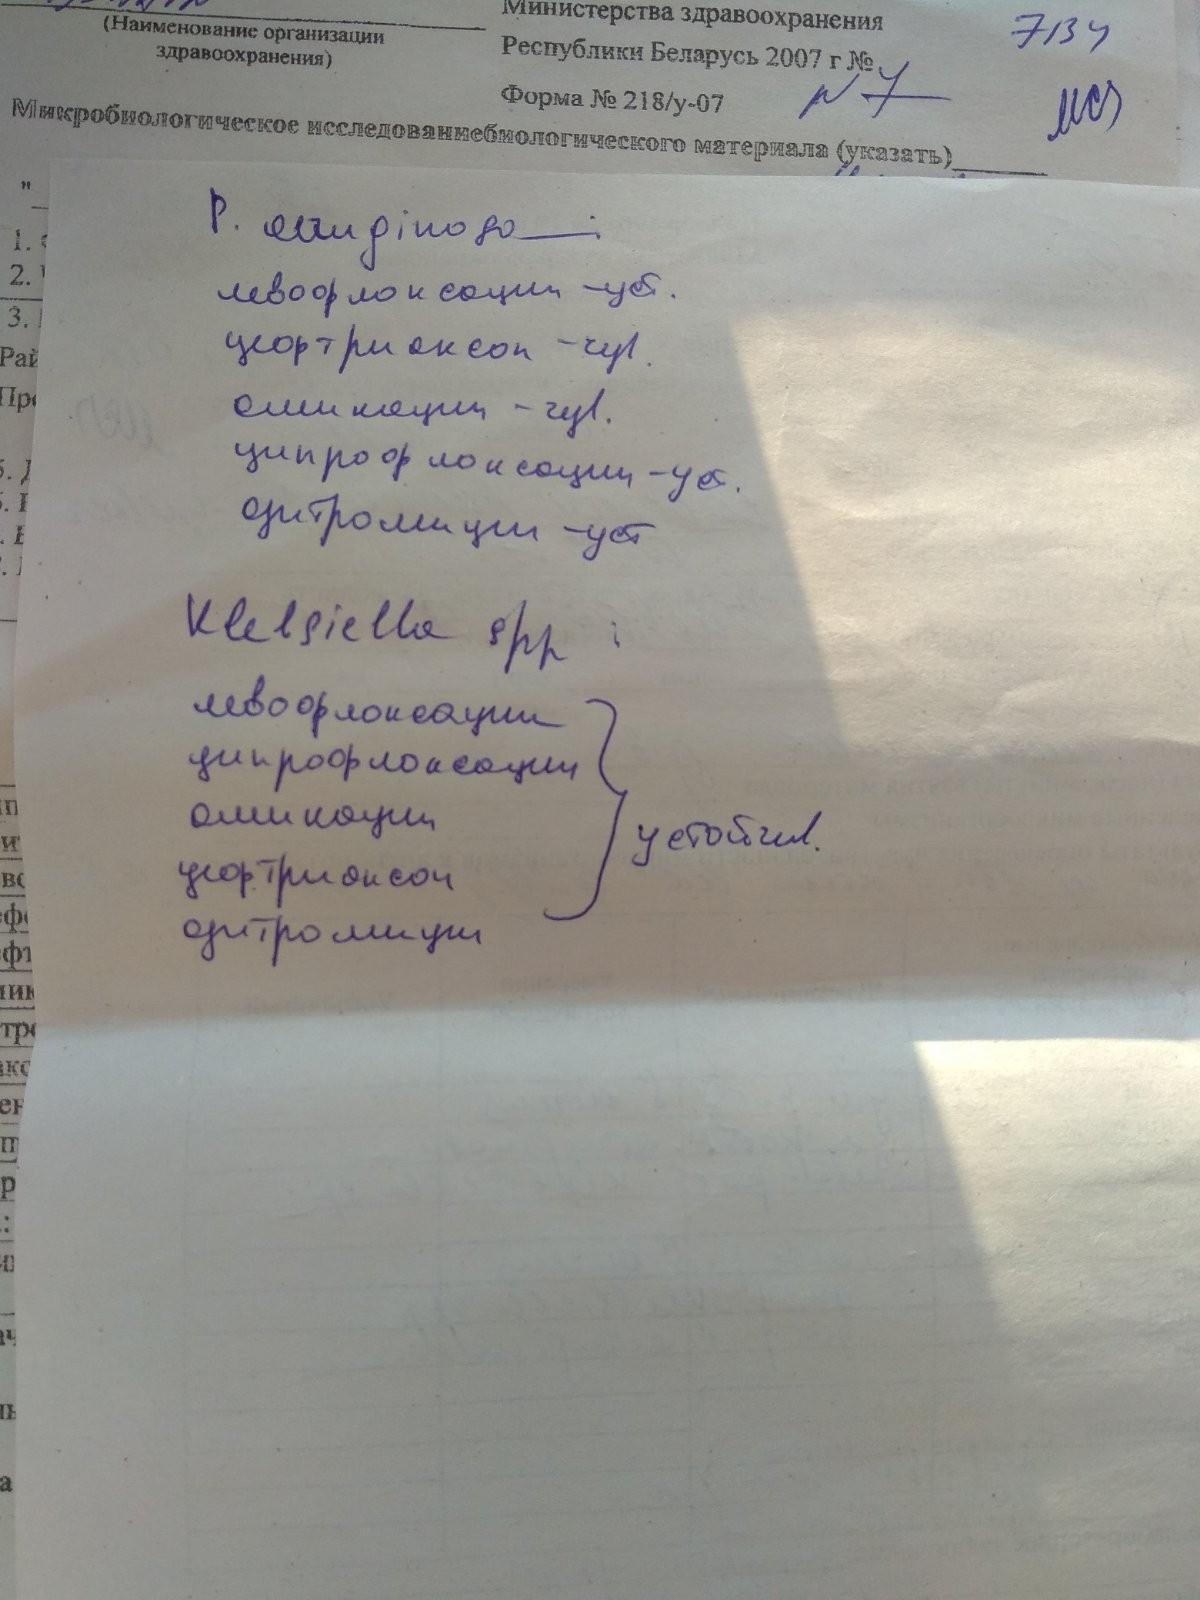 (Наименование организации
здравоохранения)
Министерства здравоохранения
Республики Беларусь 2007 г №
Форма № 218/у-07
7134
N 7
Микробиологическое исследованиебиологического материала (указать)
"
1.
2.
3.
Рай
P. aeruginosa :
левофлоксацин - уст.
цефтриаксон - чув.
амикацин - чув.
ципрофлоксацин - уст.
азитромицин - уст
Klebsiella spp :
левофлоксацин
ципрофлоксацин
амикацин
устойчив.
цефтриаксон
азитромицин